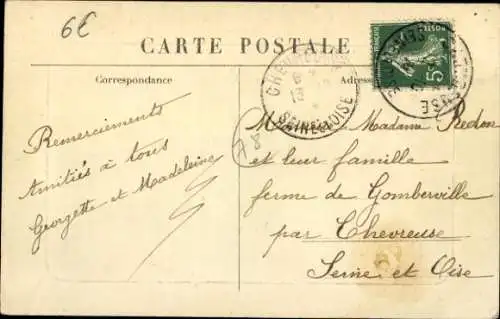 6€
CARTE POSTALE
Correspondance
CHEVREUSE
SEINE-ET-OISE
5c
Remerciements
Amitiés à tous
Georgette et Madeleine
78
Madame Redon
et leur famille
ferme de Gomberville
par Chevreuse
Seine et Oise